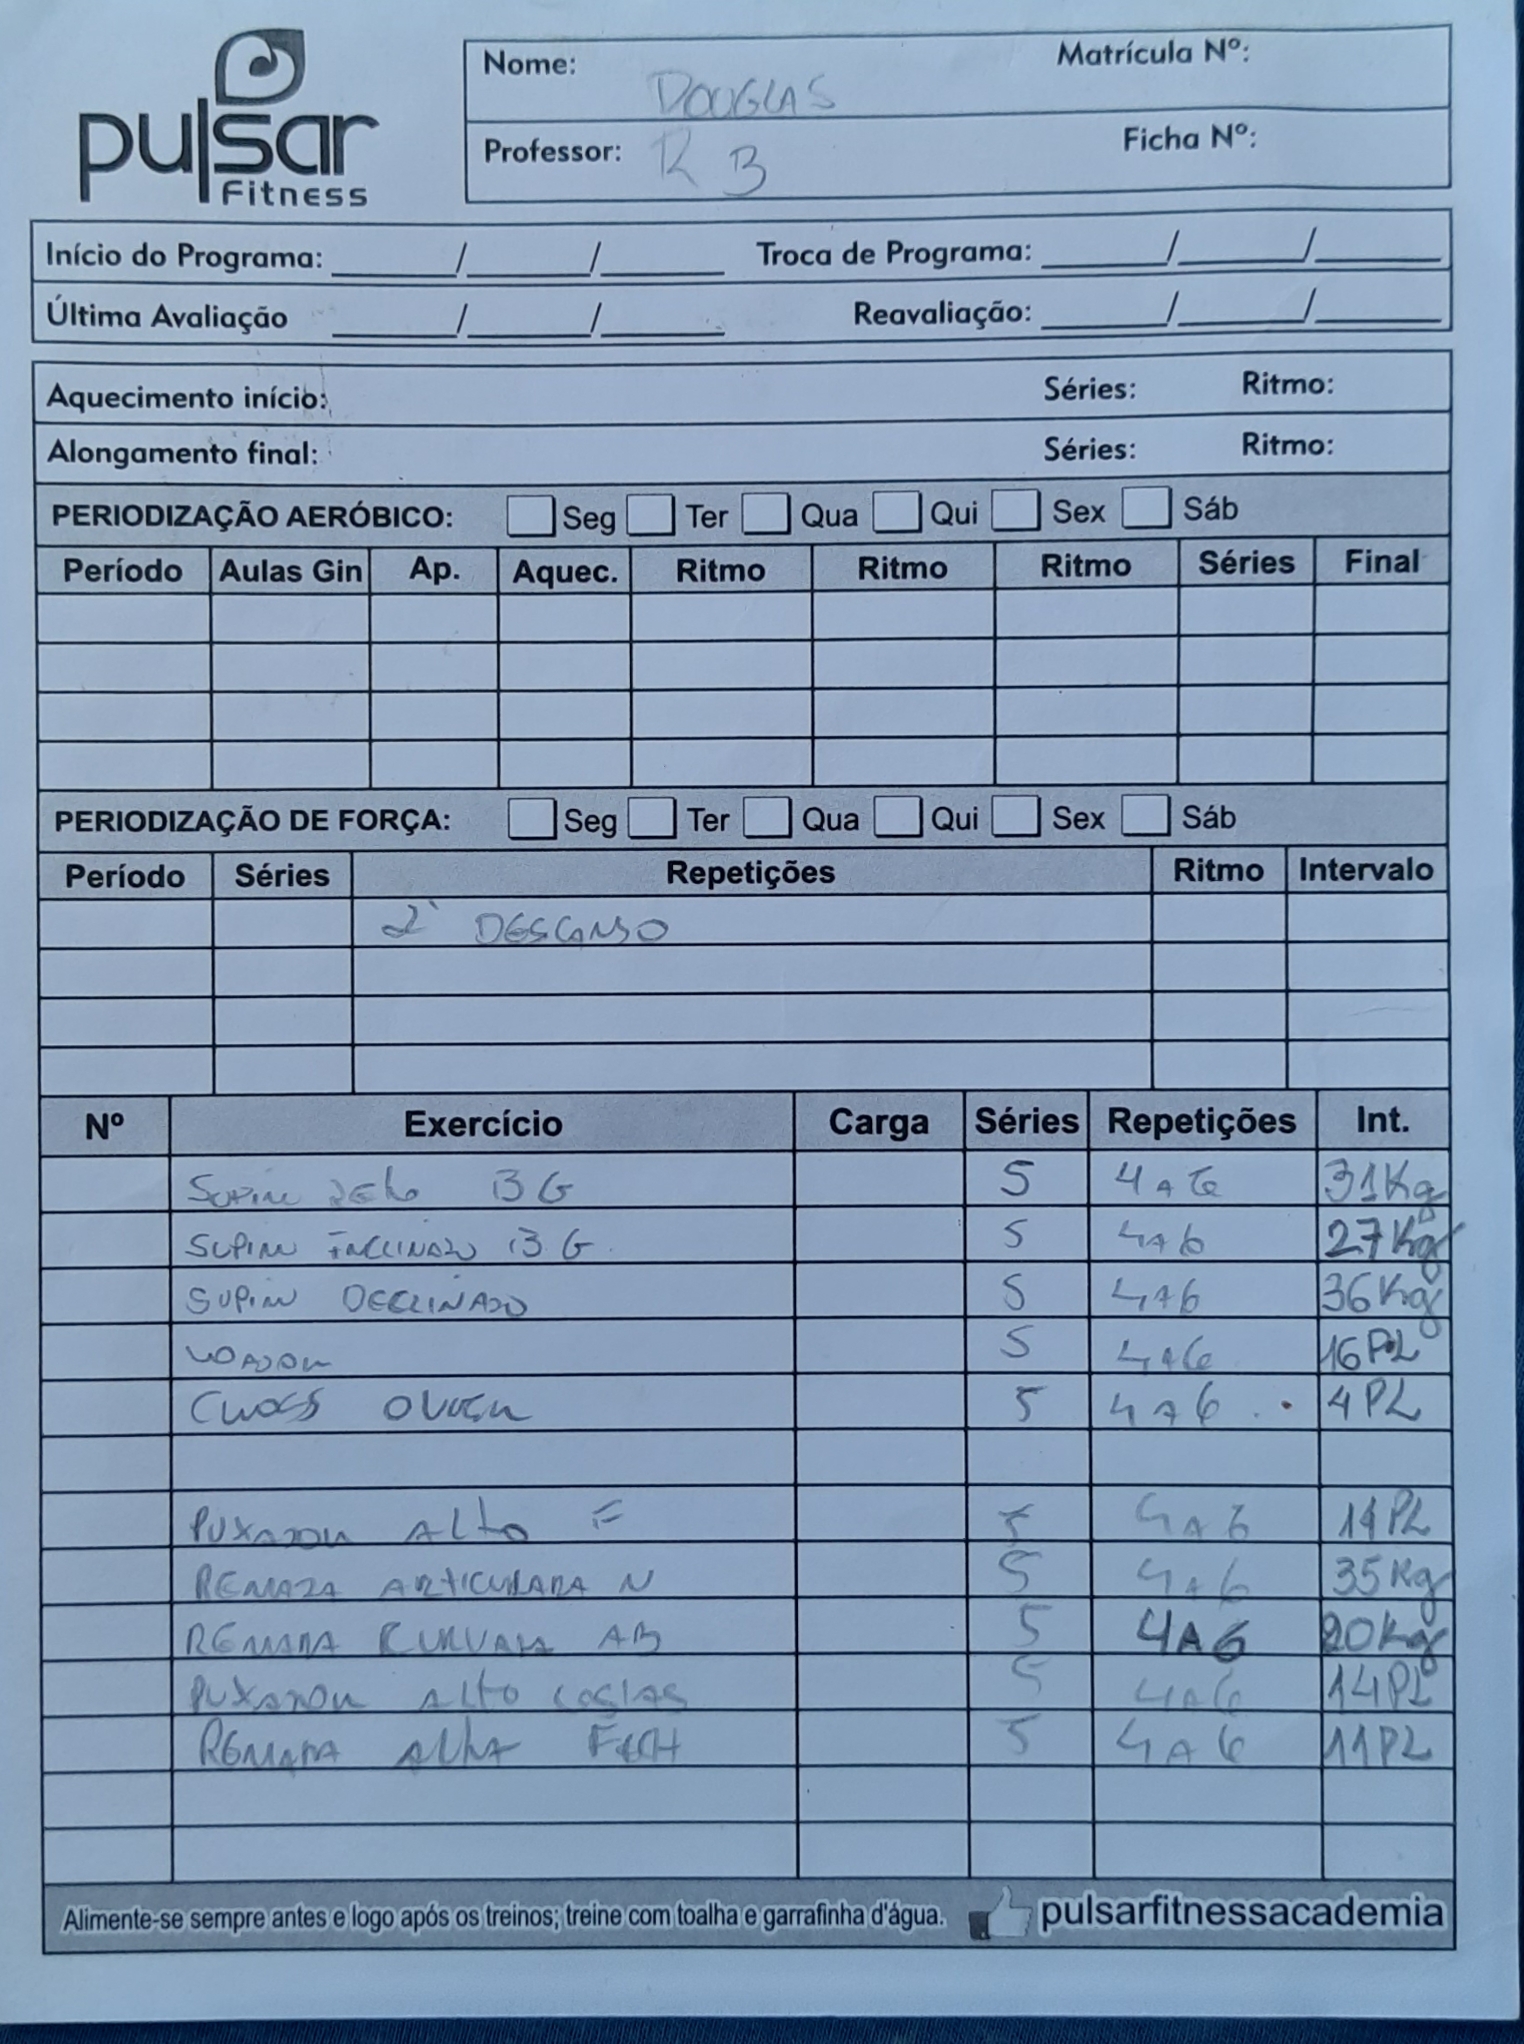 pulsar
Fitness
Nome: DOUGLAS Matrícula Nº:
Professor: R B Ficha Nº:
Início do Programa: ______/______/______ Troca de Programa: ______/______/______
Última Avaliação ______/______/______ Reavaliação: ______/______/______
Aquecimento início: Séries: Ritmo:
Alongamento final: Séries: Ritmo:
PERIODIZAÇÃO AERÓBICO: Seg Ter Qua Qui Sex Sáb
Período Aulas Gin Ap. Aquec. Ritmo Ritmo Ritmo Séries Final
PERIODIZAÇÃO DE FORÇA: Seg Ter Qua Qui Sex Sáb
Período Séries Repetições Ritmo Intervalo
2' DESCANSO
Nº Exercício Carga Séries Repetições Int.
SUPINO RETO B G 5 4 A 6 31Kg
SUPINO INCLINADO B G 5 4 A 6 27Kg
SUPINO DECLINADO 5 4 A 6 36Kg
VOADOR 5 4 A 6 16 PL
CROSS OVER 5 4 A 6 4 PL
PUXADOR ALTO F 5 4 A 6 14 PL
REMADA ARTICULADA N 5 4 A 6 35Kg
REMADA CURVADA AB 5 4 A 6 20Kg
PUXADOR ALTO COSTAS 5 4 A 6 14PL
REMADA ALTA FECH 5 4 A 6 11PL
Alimente-se sempre antes e logo após os treinos; treine com toalha e garrafinha d'água. pulsarfitnessacademia